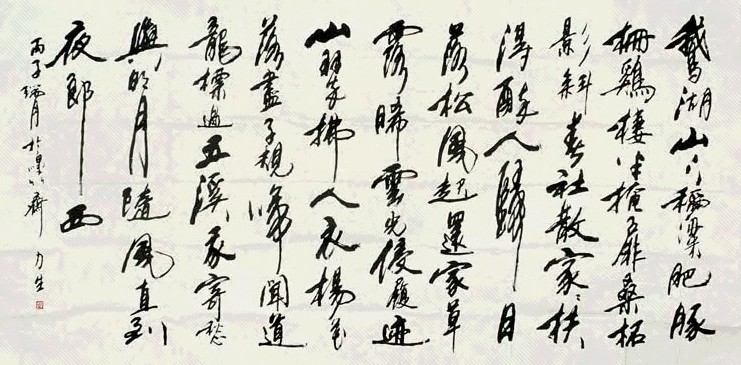 鵝湖山下稻粱肥豚
柵鷄棲半掩扉桑柘
影斜春社散家々扶
得醉人歸日
落松風起還家草
露晞雲光侵履迹
山翠拂人衣楊花
落盡子規啼聞道
龍標過五溪我寄愁
與明月隨風直到
夜郎西
丙子 月於 齋 力生